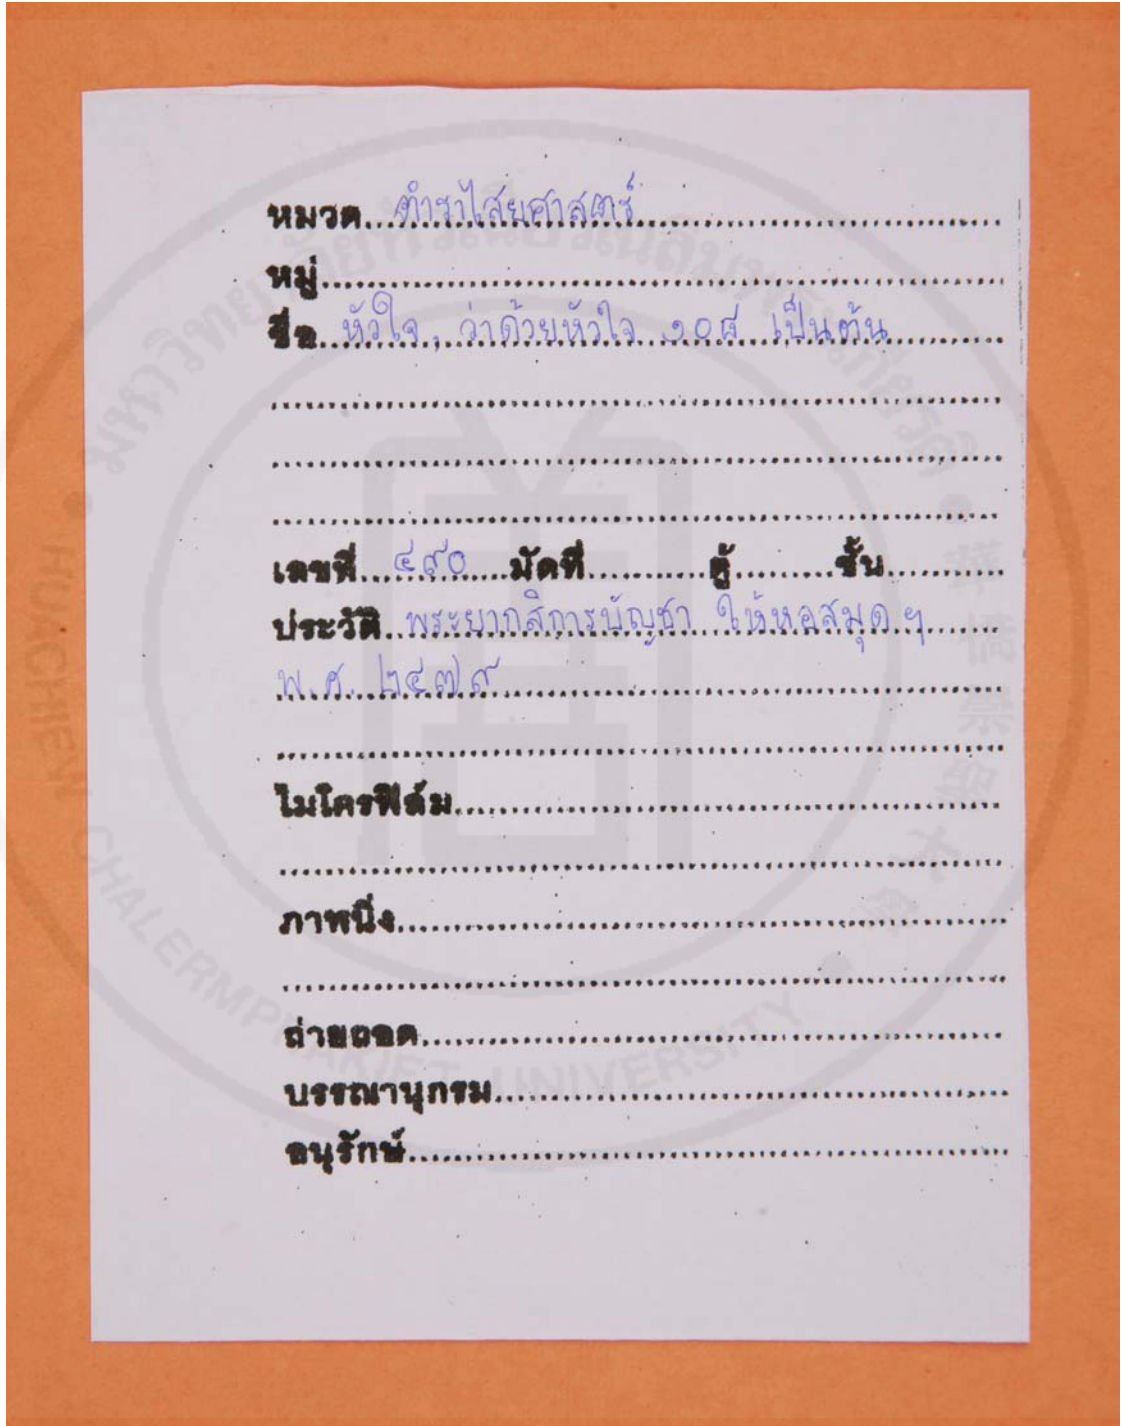 หมวด ตำราไสยศาสตร์
หมู่
ชื่อ หัวใจ, ว่าด้วยหัวใจ ๑๐๘ เป็นต้น
เลขที่ ๔๙๐ มัดที่ ตู้ ชั้น
ประวัติ พระยากสิการบัญชา ให้หอสมุดฯ
พ.ศ. ๒๔๗๙
ไมโครฟิล์ม
ภาพนิ่ง
ถ่ายถอด
บรรณานุกรม
อนุรักษ์
มหาวิทยาลัยหัวเฉียวเฉลิมพระเกียรติ
HUACHIEW CHALERMPRAKIET UNIVERSITY
華僑崇聖大學